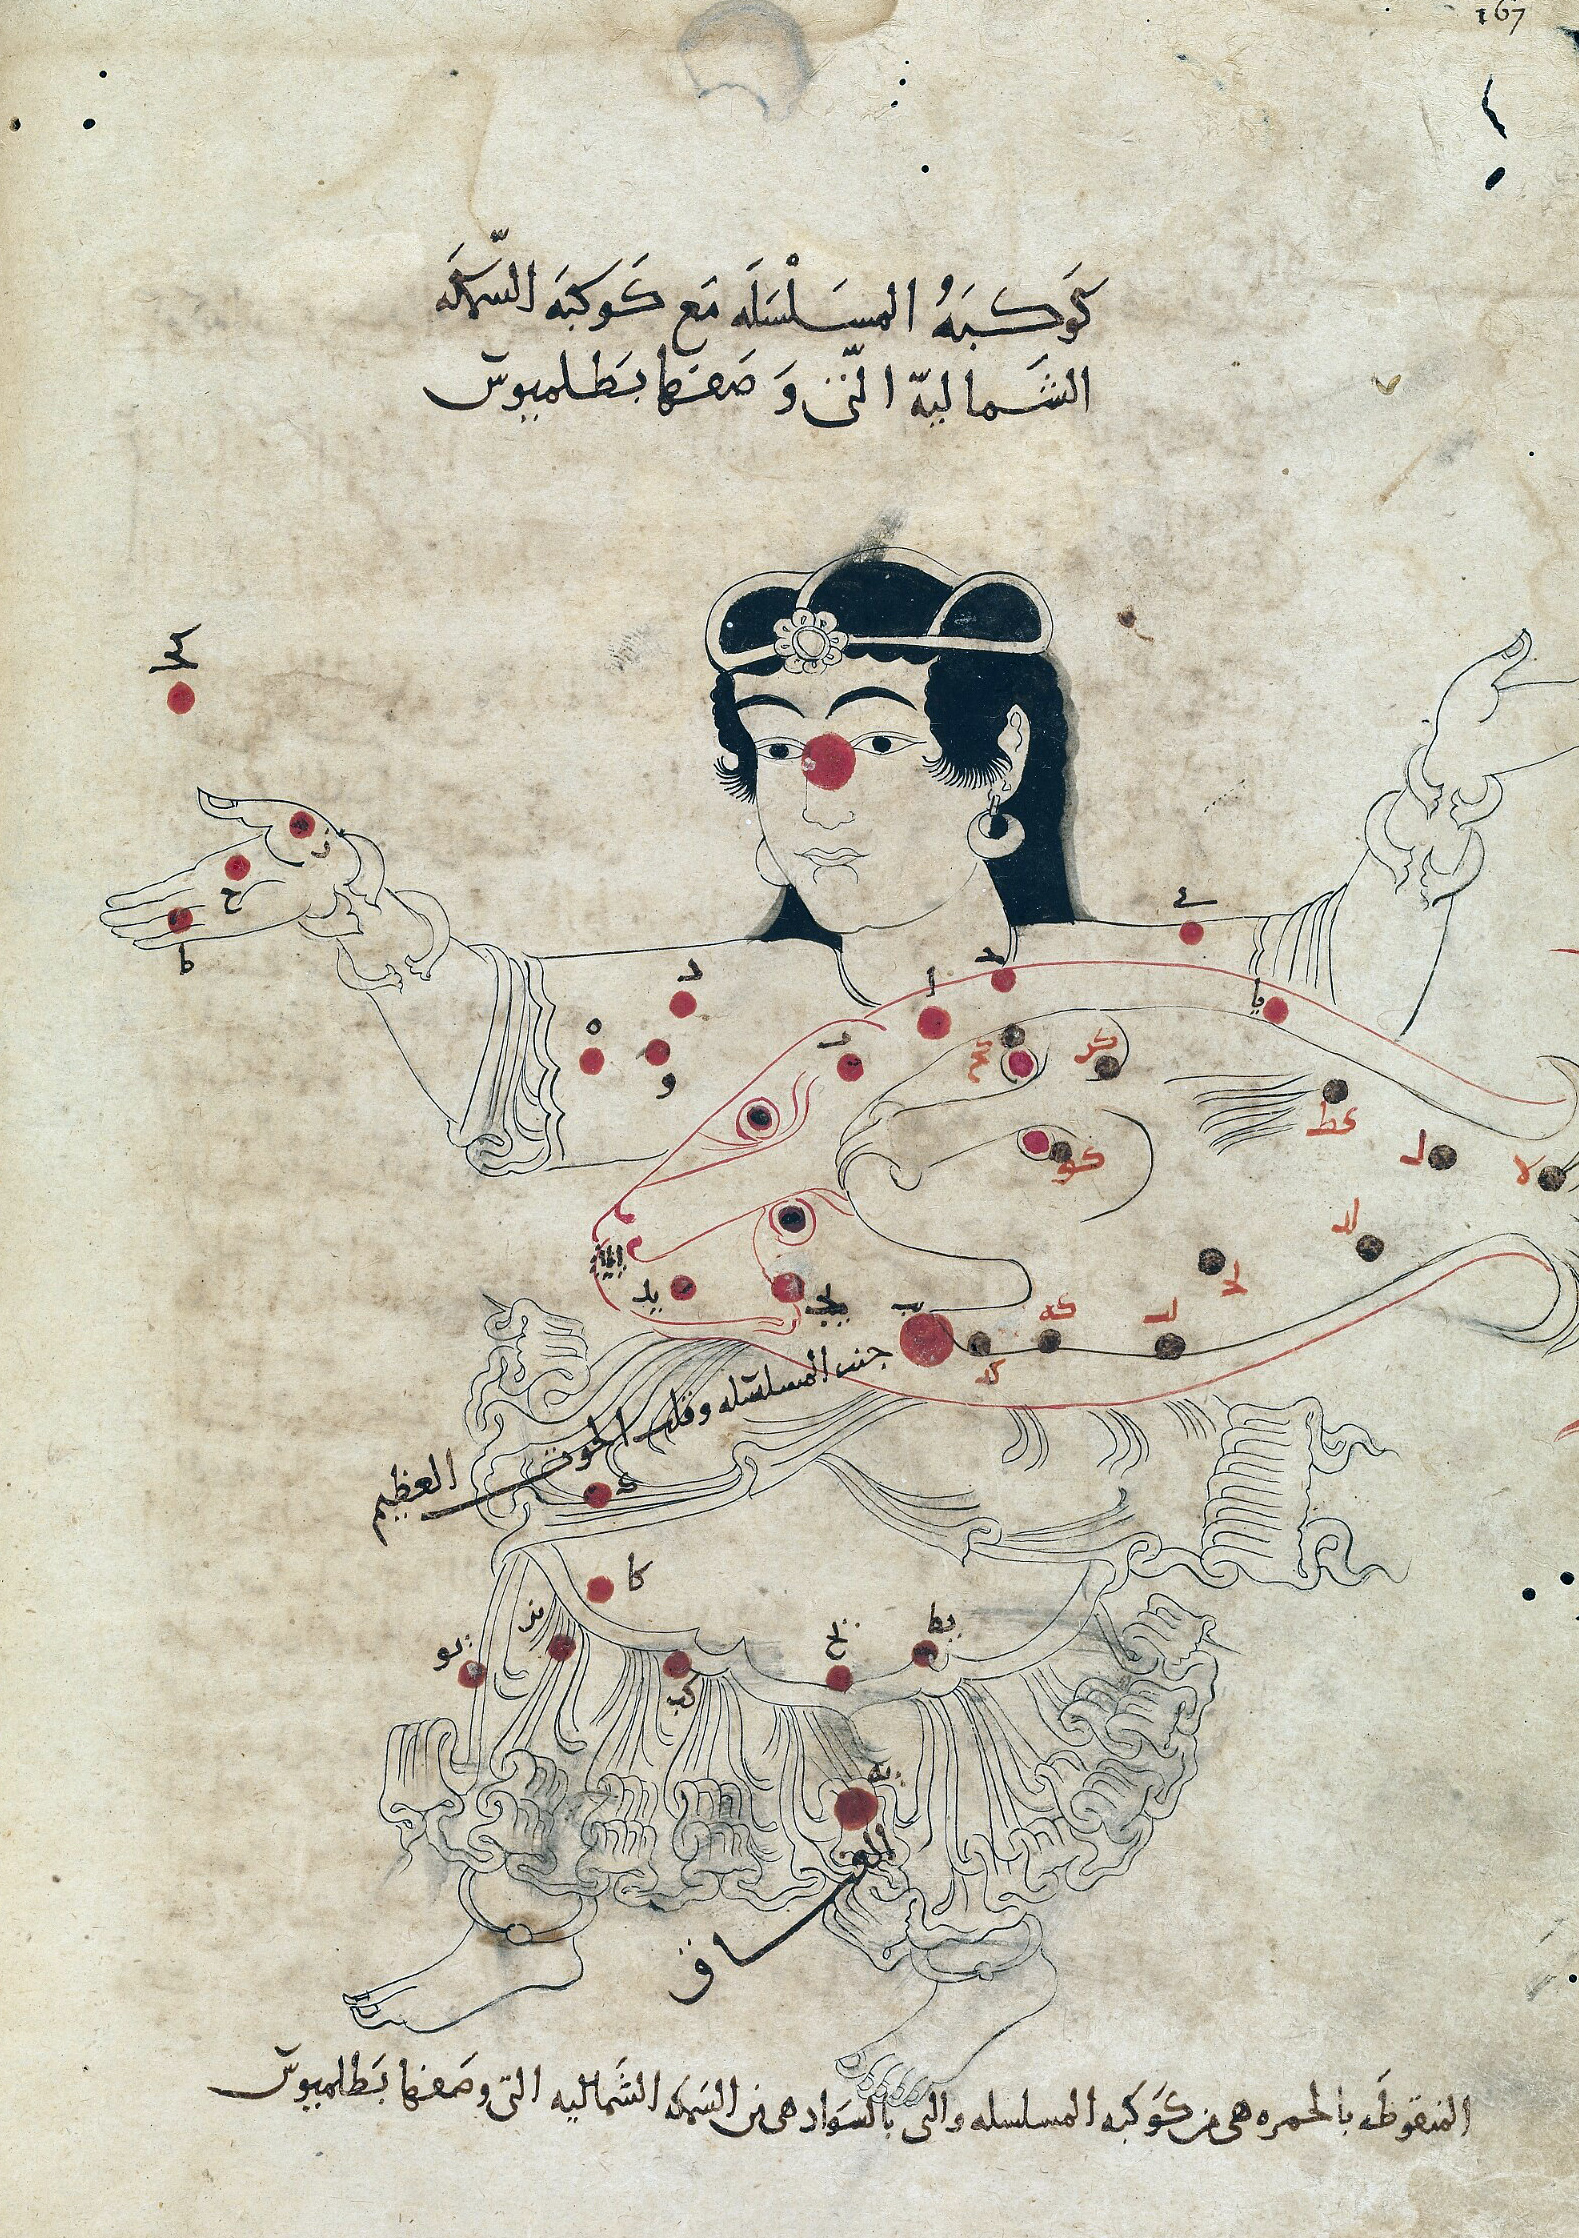 167
كَوكَبَهُ المسَلْسَلَه مَع كَوكبَه السَّمكَه
الشَمالیّه الّتى وَصَفَها بَطَلميوس
كج
ز
ح
ط
ى
د
ه
و
ا
يا
كز
كو
عط
ل
لا
لد
لح
لب
كه
كد
يد
ب
جنب المسلسله وقلب الحوت العظيم
ك
كا
يو
يز
كب
يح
يط
يه
ساق
المنقوطَه بالحمره هى من كَوكبه المسلسله والتى بالسَواد هى من السَمكه الشَماليه التى وصَفَها بَطلميوس